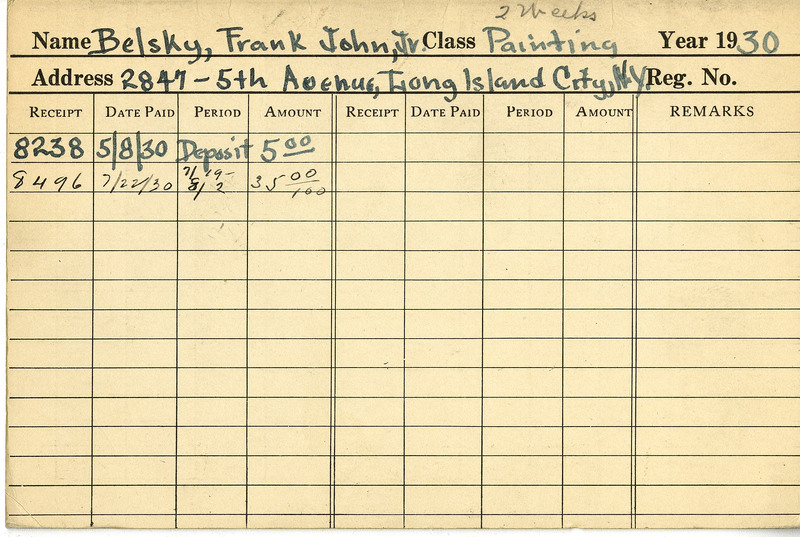 2 Weeks
Name Belsky, Frank John, Jr. Class Painting Year 1930
Address 2847 - 5th Avenue, Long Island City, N.Y. Reg. No.
RECEIPT DATE PAID PERIOD AMOUNT RECEIPT DATE PAID PERIOD AMOUNT REMARKS
8238 5/8/30 Deposit 5 00
8496 7/22/30 7/19- 8/2 35 00/100